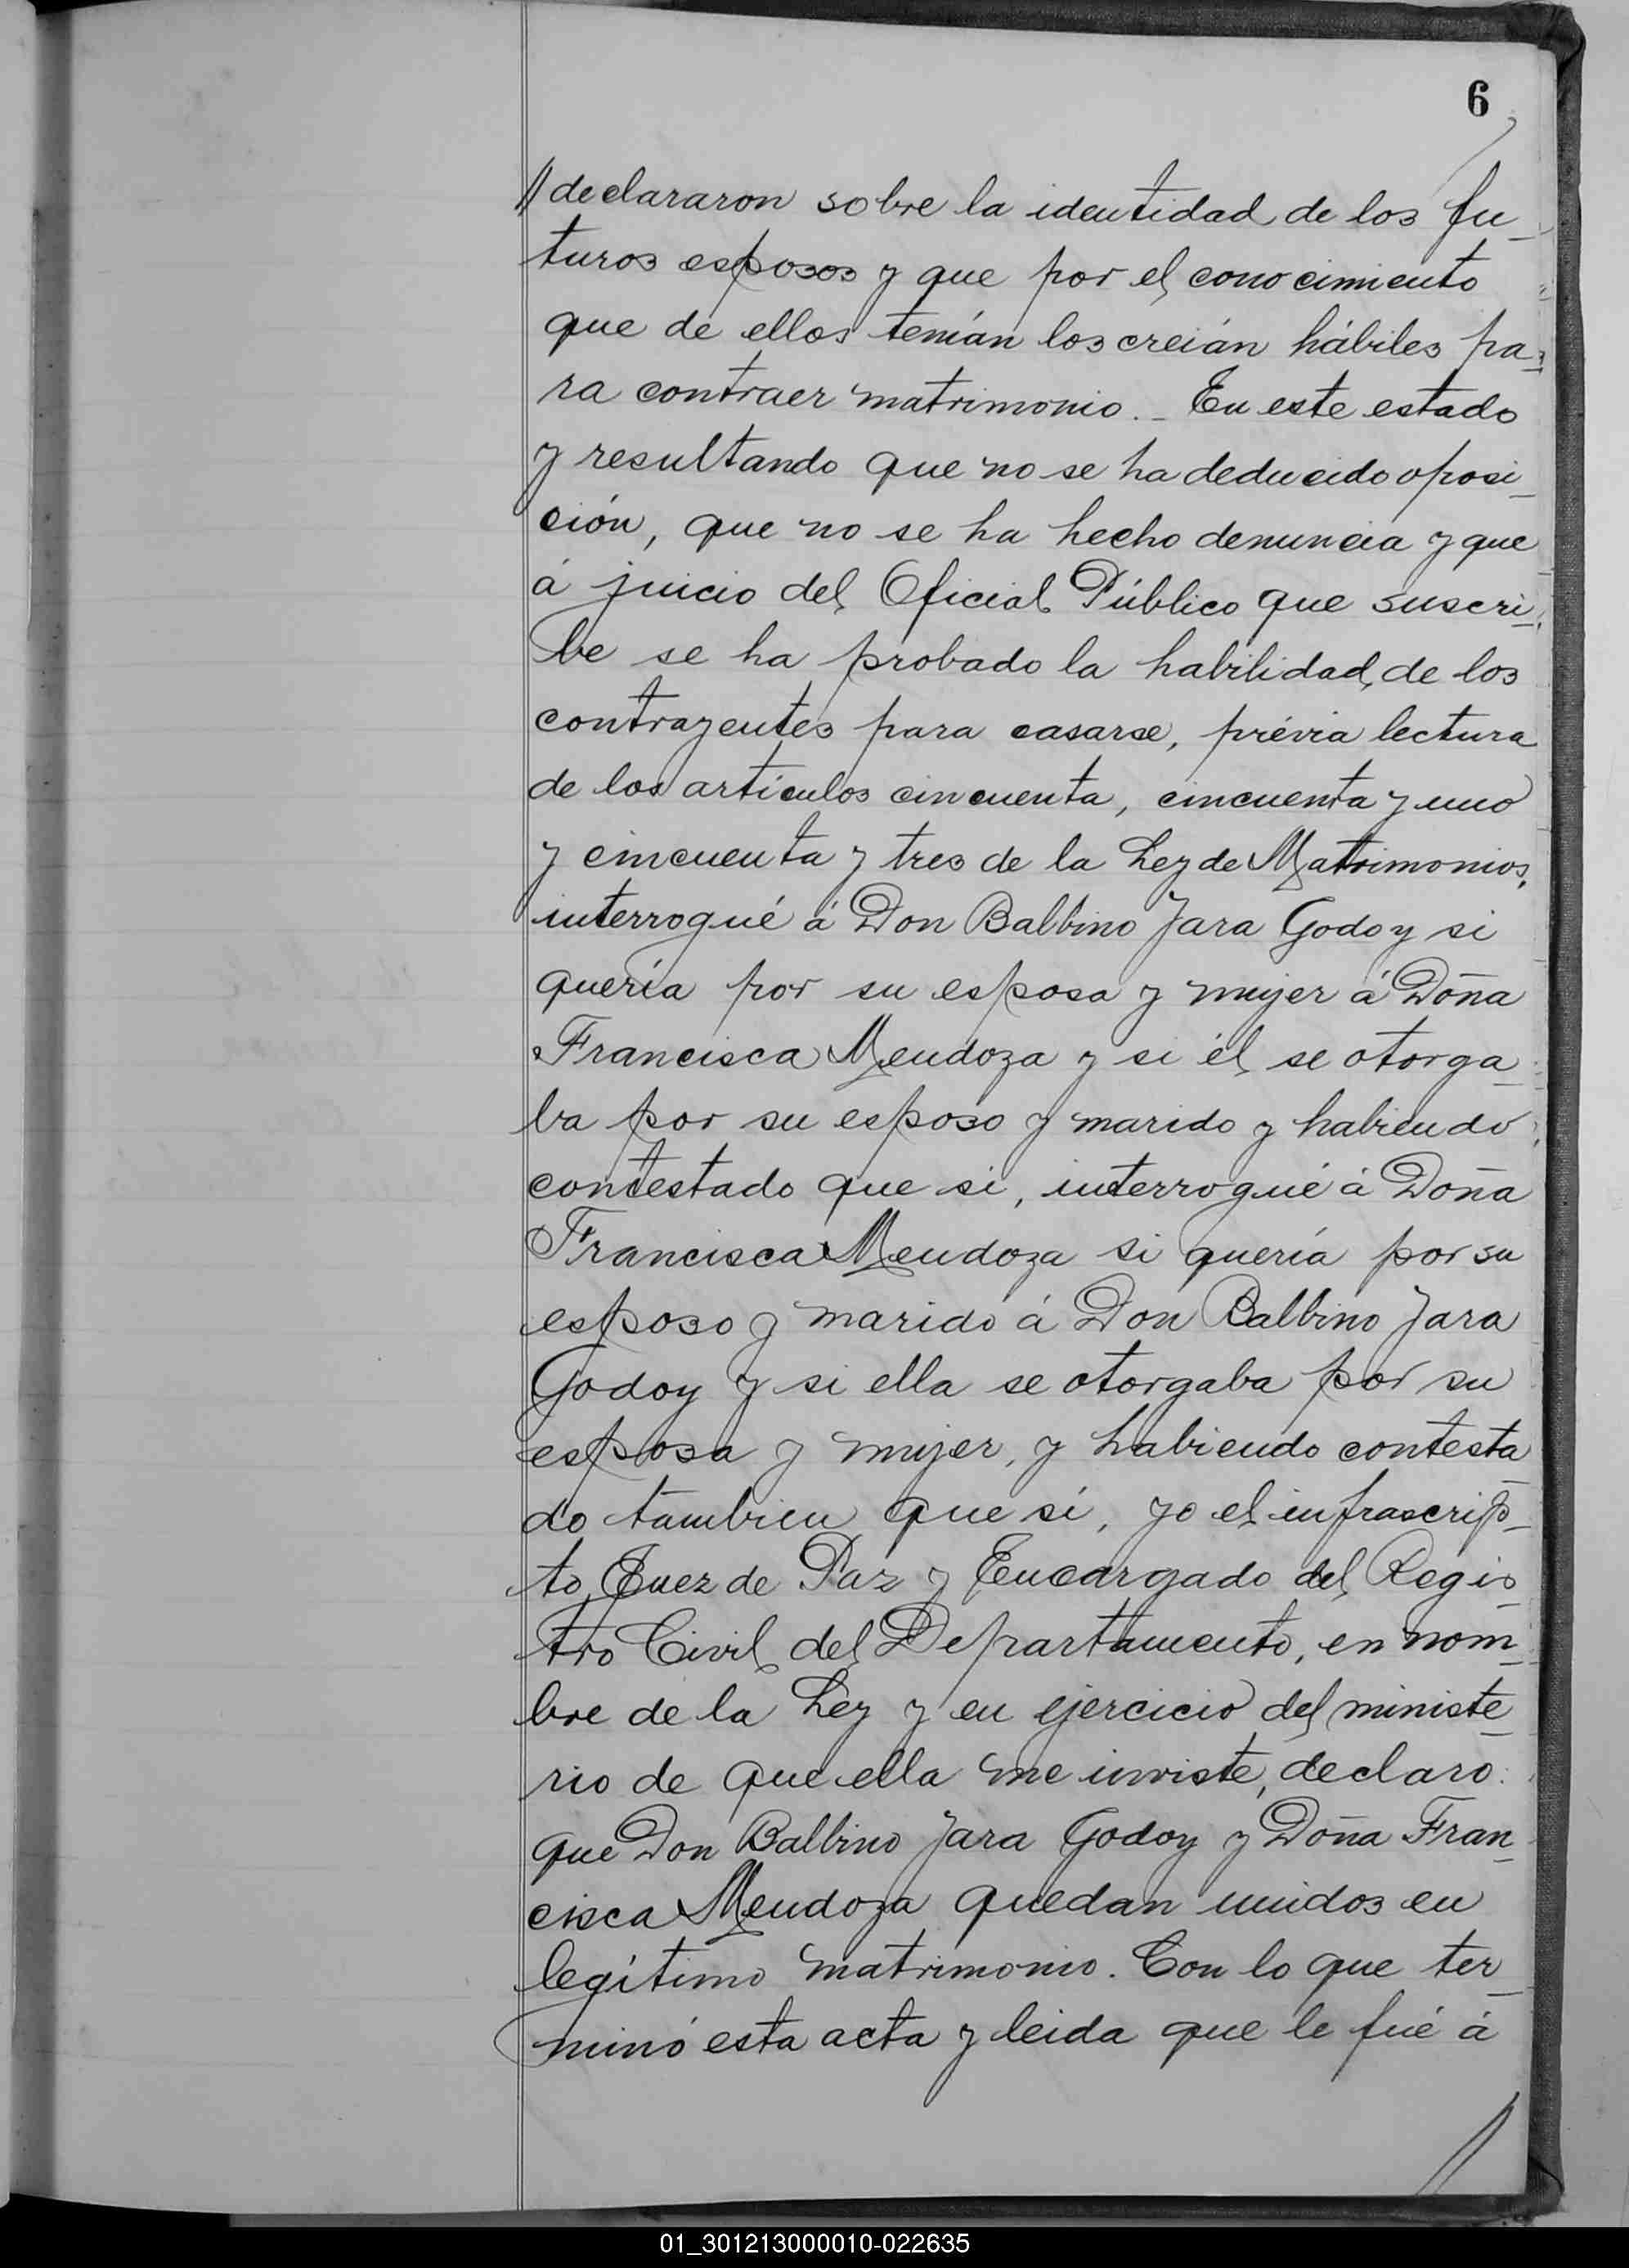 6
// declararon sobre la identidad de los fu_
turos esposos y que por el conocimiento
que de ellos tenían los creián hábiles pa_
ra contraer matrimonio._ En este estado
y resultando que no se ha deducido oposi_
ción, que no se ha hecho denuncia y que
á juicio del Oficial Público que suscri_
be se ha probado la habilidad de los
contrayentes para casarse, prévia lectura
de los artículos cincuenta, cincuenta y uno
y cincuenta y tres de la Ley de Matrimonios,
interrogué á Don Balbino Jara Godoy si
quería por su esposa y mujer á Doña
Francisca Mendoza y si él se otorga_
ba por su esposo y marido y habiendo
contestado que si, interrogué á Doña
Francisca Mendoza si quería por su
esposo y marido á Don Balbino Jara
Godoy y si ella se otorgaba por su
esposa y mujer, y habiendo contesta_
do tambien que sí, yo el infrascrip_
to, Juez de Paz y Encargado del Regis_
tro Civil del Departamento, en nom_
bre de la Ley y en ejercicio del ministe_
rio de que ella me inviste, declaro:
que Don Balbino Jara Godoy y Doña Fran_
cisca Mendoza quedan unidos en
legítimo matrimonio. Con lo que ter_
minó esta acta y leida que le fué á
//
01_301213000010-022635